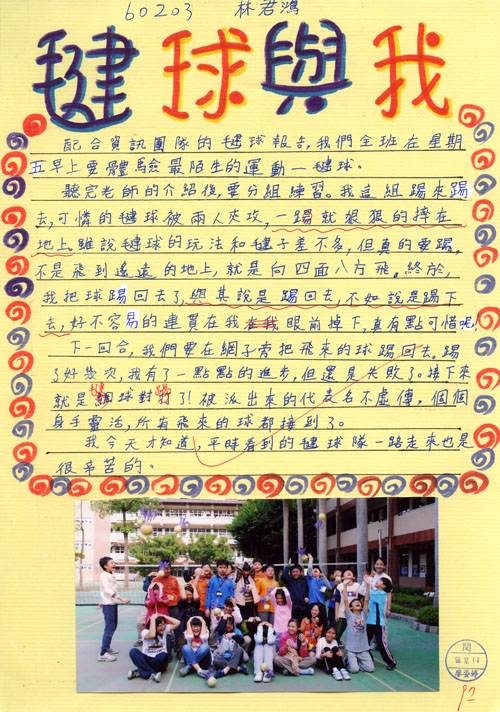 60203 林君鴻
毽球與我
配合資訊團隊的毽球報告,我們全班在星期
五早上要體驗最陌生的運動—毽球。
聽完老師的介紹後,要分組練習。我這組踢來踢
去,可憐的毽球被兩人夾攻,一踢就狠狠的摔在
地上雖說毽球的玩法和毽子差不多,但真的要踢,
不是飛到遙遠的地上,就是向四面八方飛。終於,
我把球踢回去了,與其說是踢回去,不如說是踢下
去,好不容易的連貫在我眼前掉下,真有點可惜呢!
下一回合,我們要在網子旁把飛來的球踢回去。踢
了好幾次,我有了一點點的進步,但還是失敗了。接下來
就是毽球對踢了!被派出來的代表名不虛傳,個個
身手靈活,所有飛來的球都接到了。
我今天才知道,平時看到的毽球隊一路走來也是
很辛苦的。
閱
92